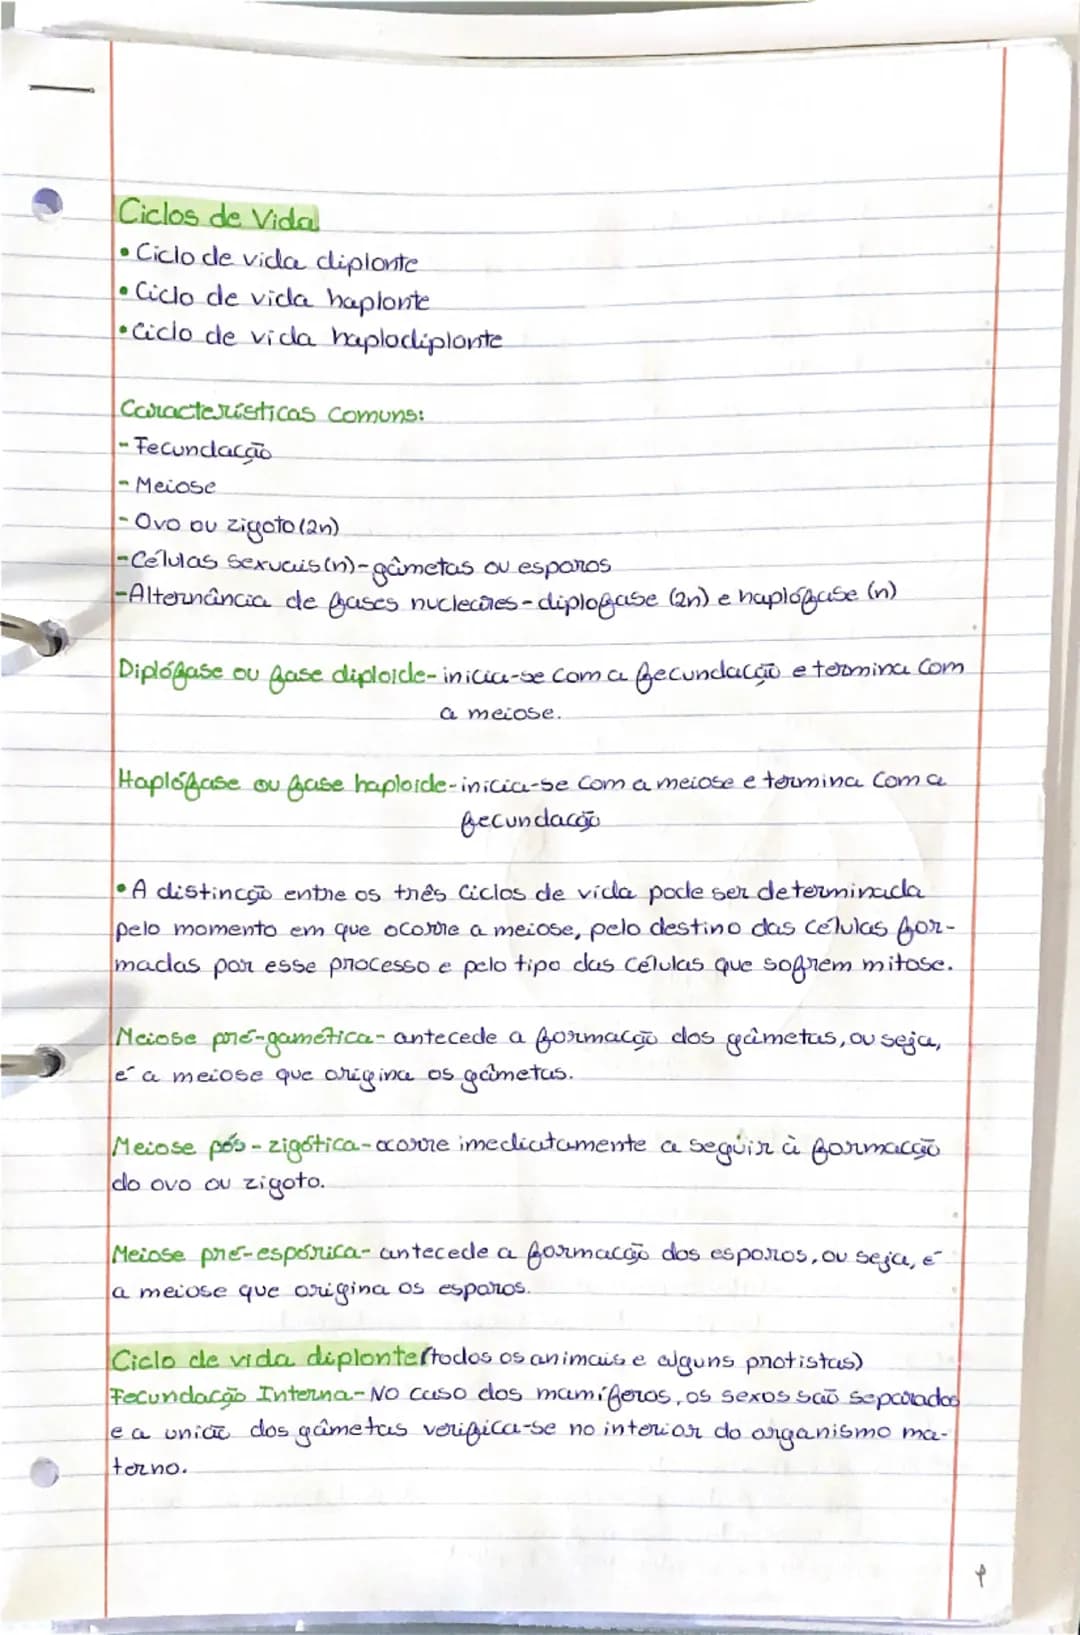 Ciclos de Vida
• Ciclo de vida diplonte
• Ciclo de vida haplonte
• Ciclo de vida haplodiplonte
Características Comuns:
- Fecundação
- Meiose
- Ovo ou zigoto (2n)
- Células sexuais (n) - gâmetas ou esporos
- Alternância de fases nucleares - diplofase (2n) e haplófase (n)
Diplófase ou fase diploide - inicia-se com a fecundação e termina com
a meiose.
Haplófase ou fase haploide - inicia-se com a meiose e termina com a
fecundação
• A distincção entre os três ciclos de vida pode ser determinada
pelo momento em que ocorre a meiose, pelo destino das células for-
madas por esse processo e pelo tipo das células que sofrem mitose.
Meiose pré-gamética - antecede a formação dos gâmetas, ou seja,
é a meiose que origina os gâmetas.
Meiose pós-zigótica - ocorre imediatamente a seguir à formação
do ovo ou zigoto.
Meiose pré-espórica - antecede a formação dos esporos, ou seja, é
a meiose que origina os esporos.
Ciclo de vida diplonte (todos os animais e alguns protistas)
Fecundação Interna - No caso dos mamíferos, os sexos são separados
e a união dos gâmetas verifica-se no interior do organismo ma-
terno.